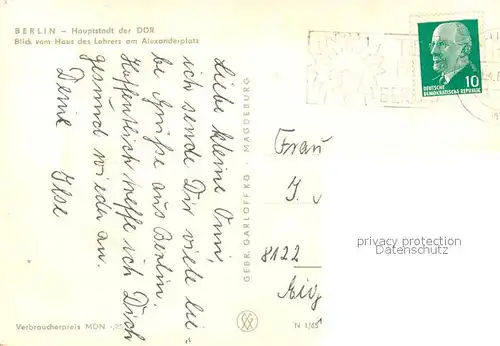 BERLIN — Hauptstadt der DDR
Blick vom Haus des Lehrers am Alexanderplatz
Liebe kleine Omi,
ich sende Dir viele lie-
be Grüße aus Berlin.
Hoffentlich treffe ich Dich
gesund wieder an.
Deine Ilse
GEBR. GARLOFF KG · MAGDEBURG
10
DEUTSCHE
DEMOKRATISCHE REPUBLIK
Frau
J.
8122
privacy protection
Datenschutz
Verbraucherpreis MDN -,25
N 1/65